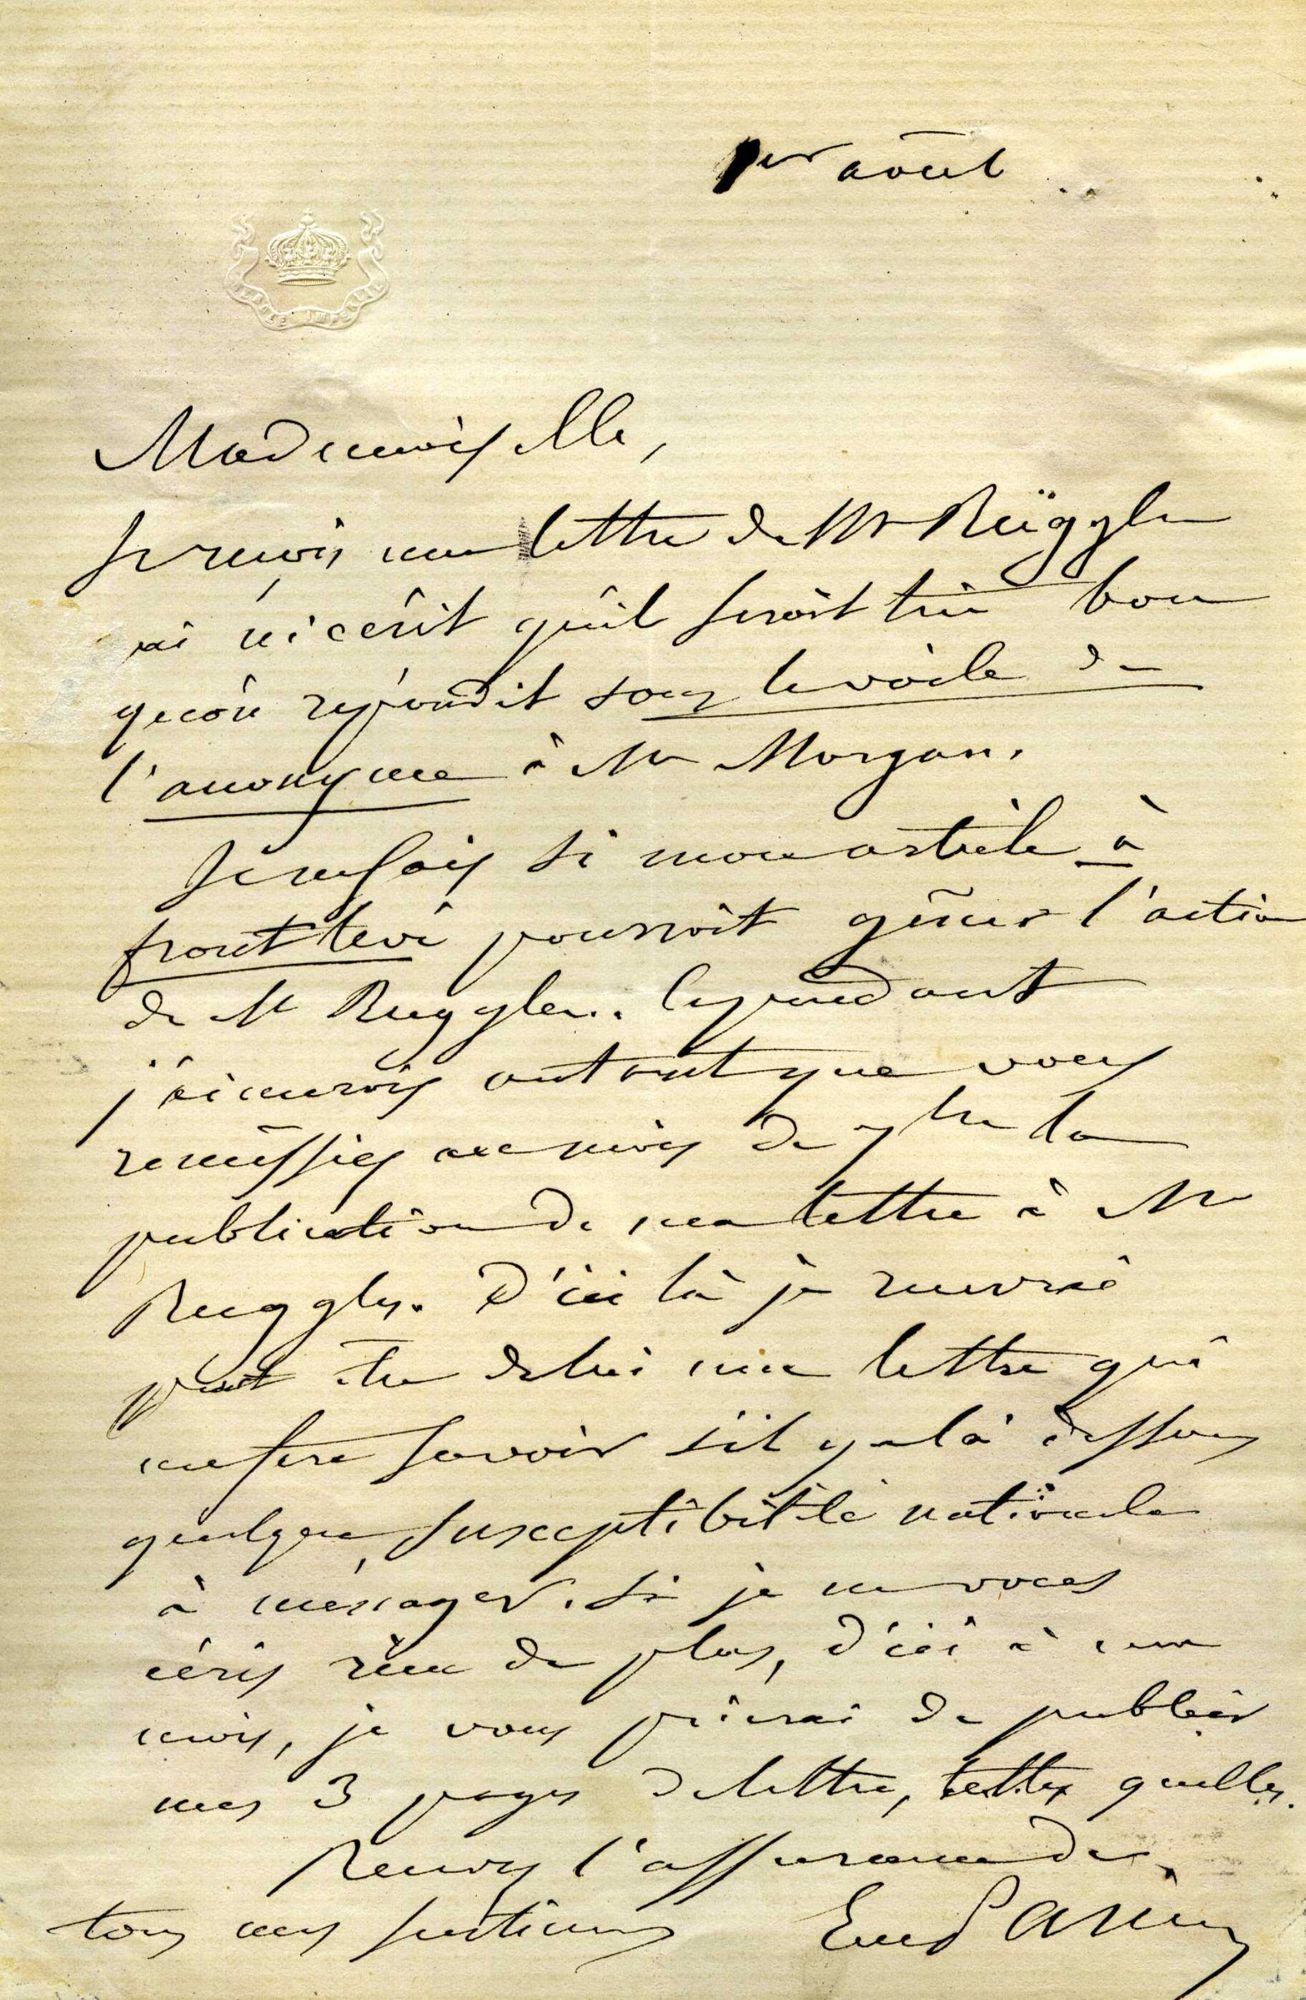 1er août
FRANCE IMPERIALE
Mademoiselle,
Je reçois une lettre de Mr Rüggles
où il écrit qu'il seroit très bon
qu'on répondit sous le voile de
l'anonyme à Mr Morgan.
Je ne sais si mon article à
front levé pourroit gêner l'action
de Mr Ruggles. Cependant
j'aimerois autant que vous
remissiez au mois de 7bre la
publication de ma lettre à Mr
Ruggles. D'ici là je recevrai
peut être de lui une lettre qui
me fera savoir s'il y a là dessous
quelque susceptibilité nationale
à ménager. Si je ne vous
écris rien de plus, d'ici à un
mois, je vous prierai de publier
mes 3 pages de lettre, telles quelles.
Recevez l'assurance de
tous mes sentimens